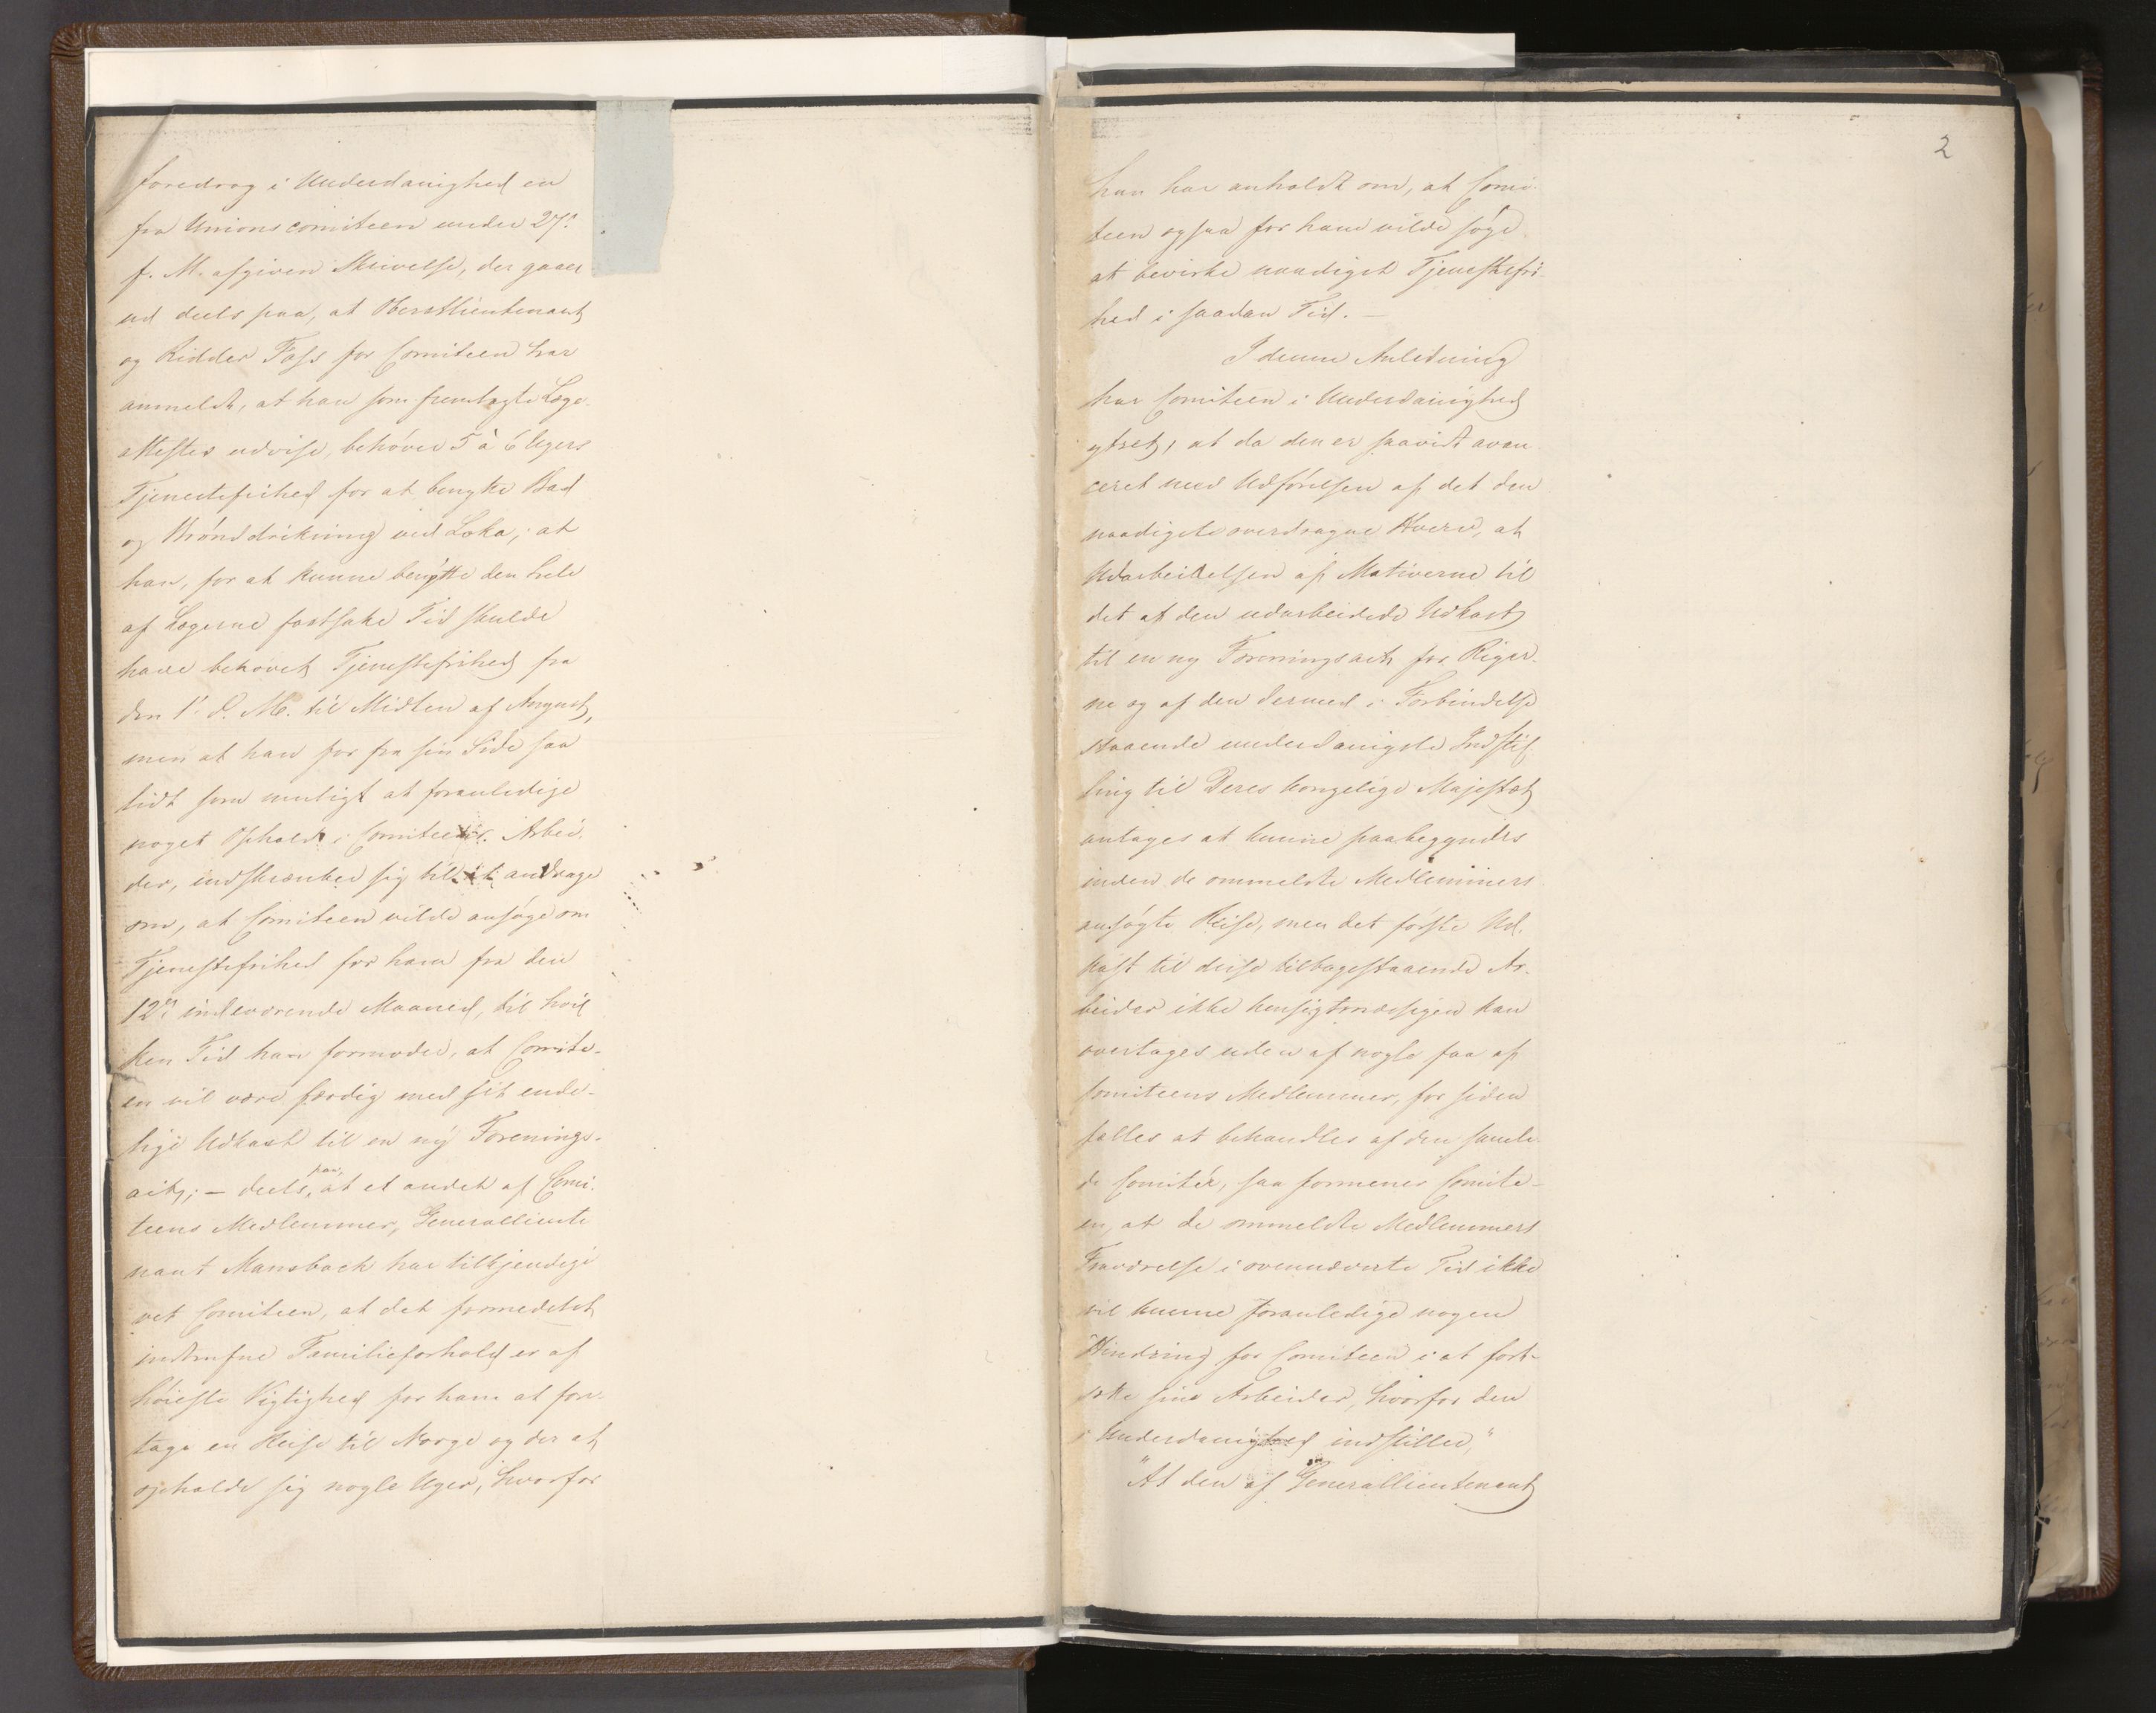 foredrog i Underdanighed en
fra Unionscomiteen under 27de
f. M. afgiven Skrivelse, der gaaer
ud deels paa, at Oberstlieutenant
og Ridder Foss for Comiteen har
anmeldt, at han som fremlagte Læge-
attester udvise, behøver 5 à 6 Ugers
Tjenestefrihed for at benytte Bad
og Brønddrikning ved Loka; at
han, for at kunne benytte den hele
af Lægerne fastsatte Tid skulde
have behøvet Tjenestefrihed fra
den 1ste d. M. til Midten af August,
men at han for fra sin Side saa
lidt som muligt at foranledige
noget Ophold i Comiteens Arbei-
der, indskrænker sig til at andrage
om, at Comiteen vilde ansøge om
Tjenestefrihed for ham fra den
12te indeværende Maaned, til hvil
ken Tid han formoder, at Comite-
en vil være færdig med sit ende-
lige Udkast til en ny Forenings-
act; — deels paa, at et andet af Comi-
teens Medlemmer, Generallieute
nant Mansbach har tilkjendegi
vet Comiteen, at det formedelst
indtrufne Familieforhold er af
høieste Vigtighed for ham at fore-
tage en Reise til Norge og der at
opholde sig nogle Uger, hvorfor
2
han har anholdt om, at Comi-
teen ogsaa for ham vilde søge
at bevirke naadigst Tjenestefri-
hed i saadan Tid. —
I denne Anledning
har Comiteen i Underdanighed
yttret, at da den er saavidt avan
ceret med Udførelsen af det den
naadigste overdragne Hverv, at
Udarbeidelsen af Motiverne til
det af den udarbeidede Udkast
til en ny Foreningsact for Riger-
ne og af den dermed i Forbindelse
staaende underdanigste Indstil
ling til Deres kongelige Majestæt
antages at kunne paabegyndes
inden de ommeldte Medlemmers
ansøgte Reise, men det første Ud-
kast til disse tilbagestaaende Ar-
beider ikke hensigtmæssigen kan
overtages uden af nogle faa af
Comiteens Medlemmer, for siden
fælles at behandles af den samle-
de Comitée, saa formener Comite-
en, at de ommeldte Medlemmers
Fraværelse i ovennævnte Tid ikke
vil kunne foranledige nogen
Hindring for Comiteen i at fort-
sætte sine Arbeider, hvorfor den
i Underdanighed indstiller,"
"At den af Generallieutenant